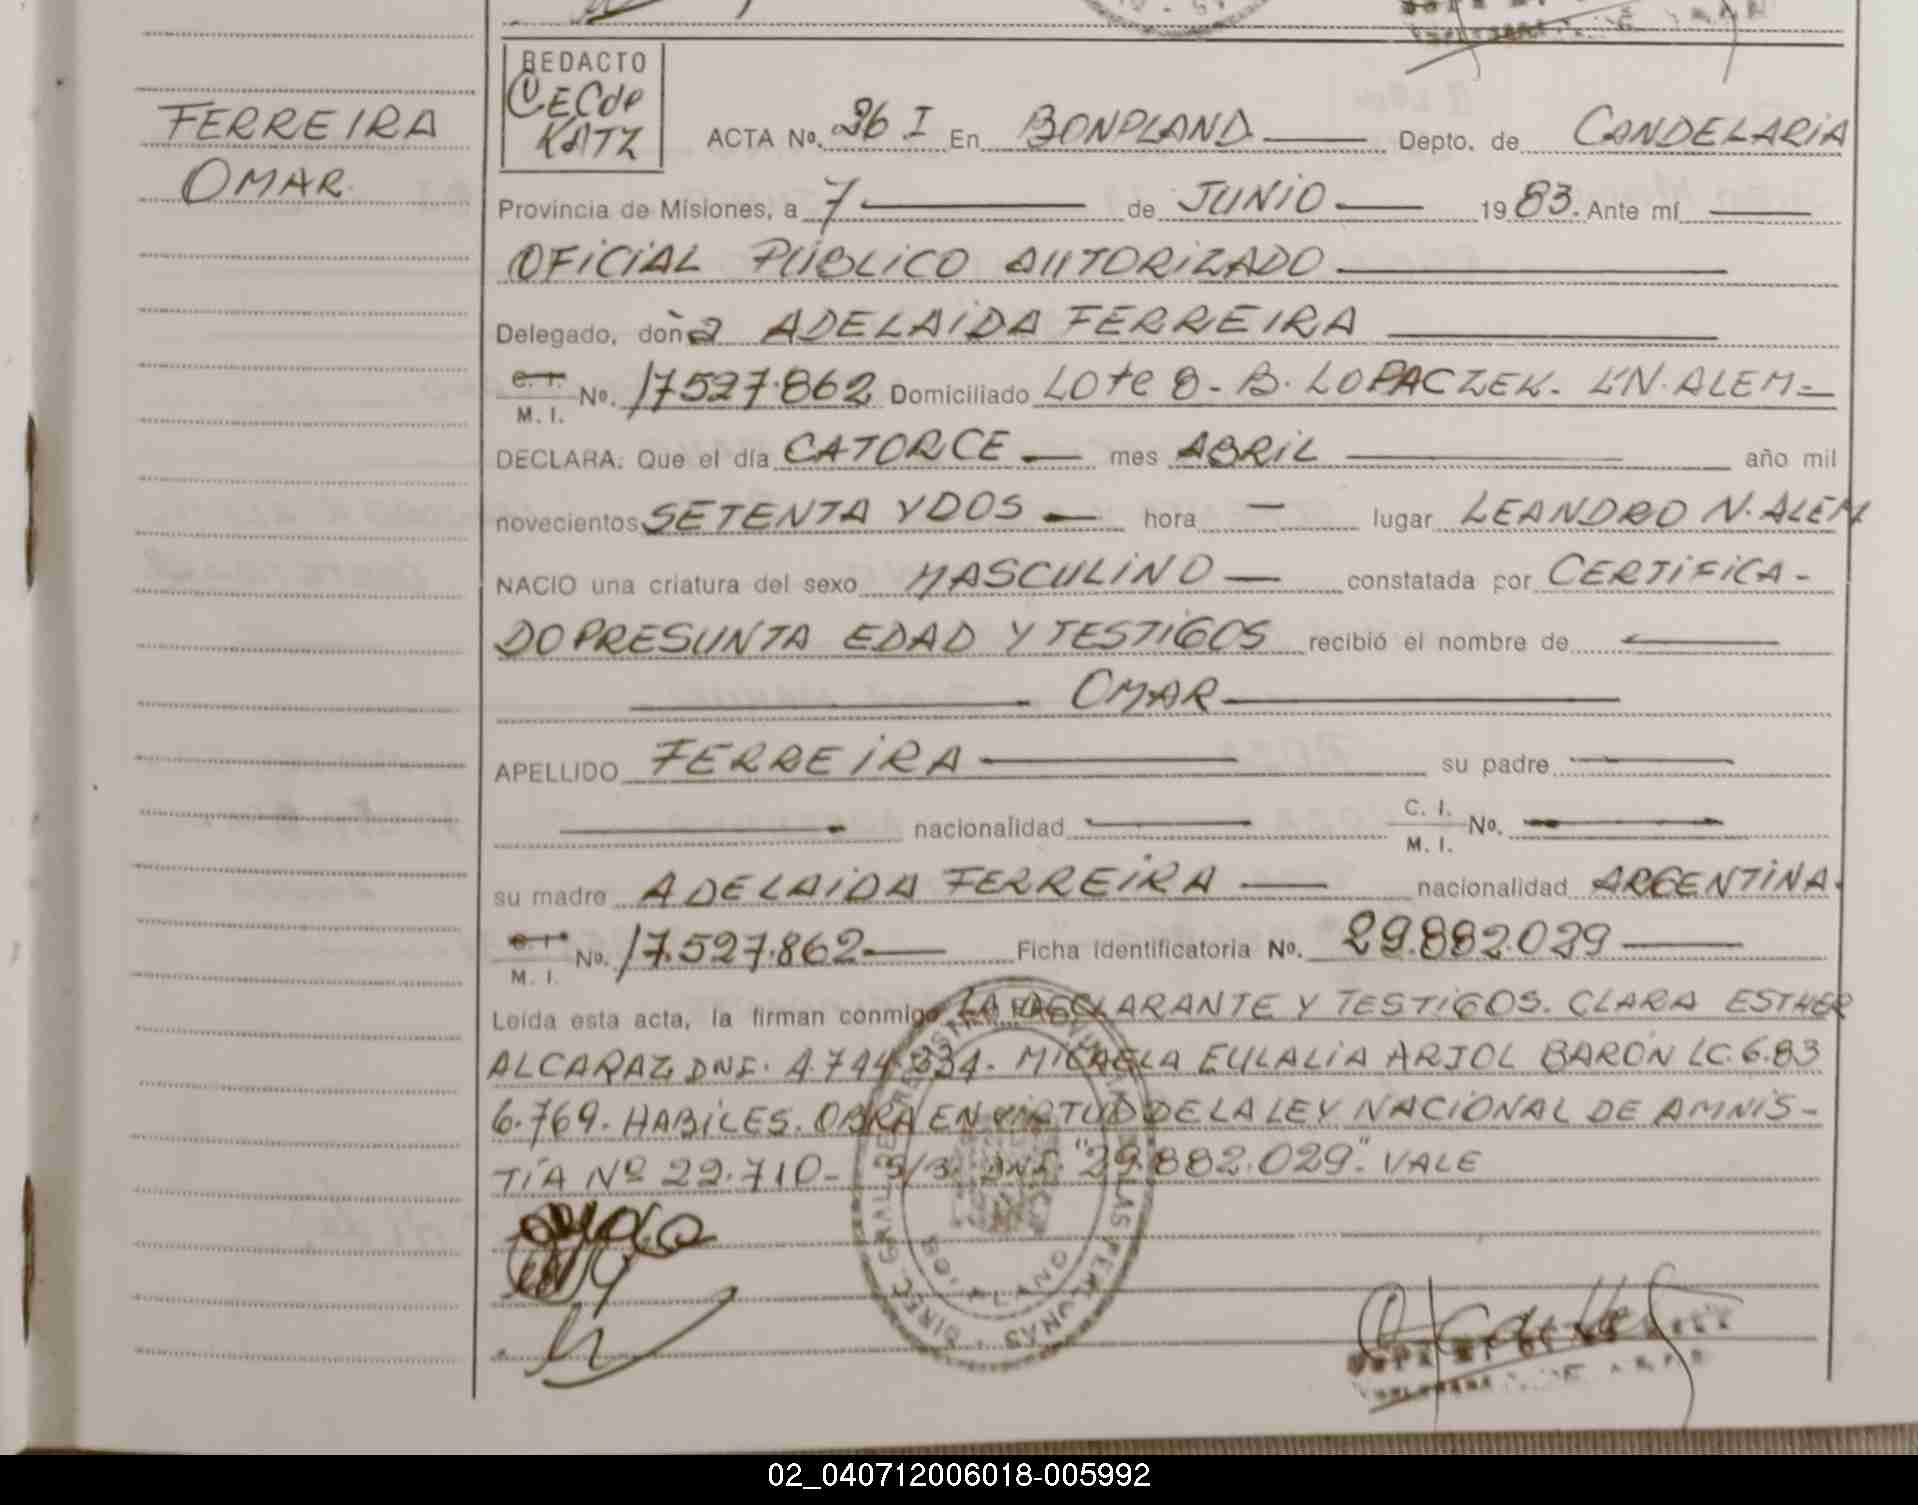 FERREIRA
OMAR.
REDACTO
CECde
KATZ
ACTA No. 26 I En BONPLAND Depto. de CANDELARIA
Provincia de Misiones, a 7 de JUNIO 1983. Ante mí
OFICIAL PÚBLICO AUTORIZADO
Delegado, doña ADELAIDA FERREIRA
C. I.
M. I. No. 17527.862 Domiciliado LOTE 8 - B. LOPACZEK. L'N. ALEM-
DECLARA: Que el día CATORCE mes ABRIL año mil
novecientos SETENTA Y DOS hora lugar LEANDRO N. ALEM
NACIO una criatura del sexo MASCULINO constatada por CERTIFICA-
DO PRESUNTA EDAD Y TESTIGOS recibió el nombre de
OMAR
APELLIDO FERREIRA su padre
nacionalidad C. I.
M. I. No.
su madre ADELAIDA FERREIRA nacionalidad ARGENTINA.
C. I.
M. I. No. 17.527.862 Ficha Identificatoria No. 29.882.029
Leída esta acta, la firman conmigo LA DECLARANTE Y TESTIGOS. CLARA ESTHER
ALCARAZ DNF. 4.744.334. MICAELA EULALIA ARJOL BARON LC. 6.83
6.769. HABILES. OBRA EN VIRTUD DE LA LEY NACIONAL DE AMNIS-
TÍA Nº 22.710- S/B. DNF. "29.882.029." VALE
02_040712006018-005992